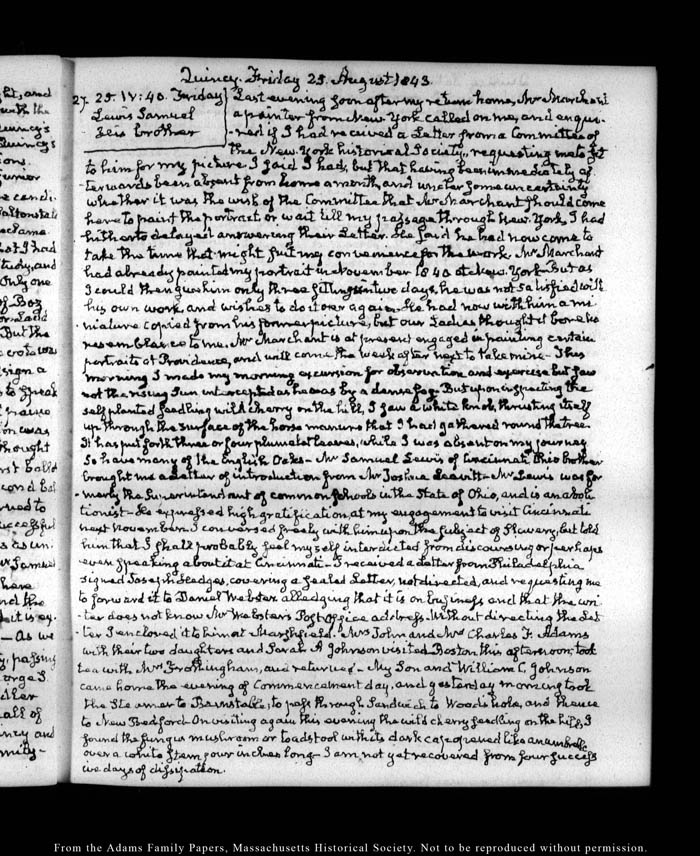 Quincy. Friday 25. August 1843.
27. 25. IV:40. Friday
Lewis Samuel
his brother
Last evening soon after my return home, Mr Marchant
a painter from New-York called on me, and enqui-
-red if I had received a Letter from a Committee of
the New-York historical Society, requesting me to sit
to him for my picture. I said I had, but that having been immediately af-
-terwards been absent from home a month, and under some uncertainty
whether it was the wish of the Committee that Mr Marchant should come
here to paint the portrait or wait till my passage through New-York, I had
hitherto delayed answering their Letter. He said he had now come to
take the time that might suit my convenience for the work. Mr Marchant
had already painted my portrait in November 1840 at New-York. But as
I could then give him only three sittings in two days, he was not satisfied with
his own work, and wishes to do it over again. He had now with him a mi-
-niature copied from his former picture, but our Ladies thought it bore no
resemblance to me. Mr Marchant is at present engaged in painting certain
portraits at Providence, and will come the week after next to take mine. This
morning I made my morning excursion for observation and exercise but saw
not the rising Sun intercepted as he was by a dense fog. But upon inspecting the
self planted seedling wild cherry on the hill, I saw a white knob, thrusting itself
up through the surface of the horse manure that I had gathered round the tree.
It has put forth three or four plumulet leaves, while I was absent on my journey
So have many of the English Oaks - Mr Samuel Lewis of Cincinnati Ohio brother
brought me a Letter of introduction from Mr Joshua Leavitt - Mr Lewis was for-
-merly the Superintendant of common schools in the State of Ohio, and is an aboli-
tionist - He expressed high gratification at my engagement to visit Cincinnati
next November. I conversed freely with him upon the subject of Slavery, but told
him that I shall probably feel myself interdicted from discoursing or perhaps
even speaking about it at Cincinnati - I received a Letter from Philadelphia
signed Joseph Sledges, covering a sealed Letter, not directed, and requesting me
to forward it to Daniel Webster alledging that it is on business and that the wri-
-ter does not know Mr Webster's Post Office address. Without directing the Let-
-ter I enclosed it to him at Marshfield. Mrs John and Mrs Charles F. Adams
with their two daughters and Sarah A Johnson visited Boston this afternoon, took
tea with Mrs Frothingham, and returned - My Son and William C. Johnson
came home the evening of Commencement day, and yesterday morning took
the Steamer to Barnstable, to pass through Sandwich to Woods hole, and thence
to New Bedford. On visiting again this evening the wild cherry seedling on the hill, I
found the fungus mushroom or toadstool with its dark cap opened like an umbrella
over a white stem four inches long - I am not yet recovered from four success
ive days of dissipation.
From the Adams Family Papers, Massachusetts Historical Society. Not to be reproduced without permission.